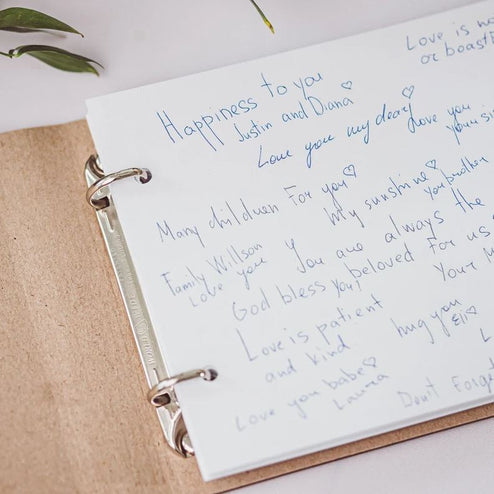 Love is no
or boasti
Happiness to you
Justin and Diana
Love you my dear
Love you
your si
Many children For you
My sunshine
your brother
Family Willson
Love you
You are always the
beloved For us
God bless you!
Your M
Love is patient
and kind
hug you
Ell
Love you babe
Laura
Don't Forget